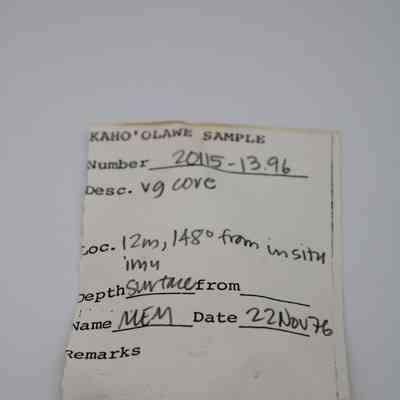 KAHO'OLAWE SAMPLE
Number 20115-13.96
Desc. vg core
Loc. 12m, 148° from in situ
imu
Depth surface from
Name MEM Date 22Nov76
Remarks